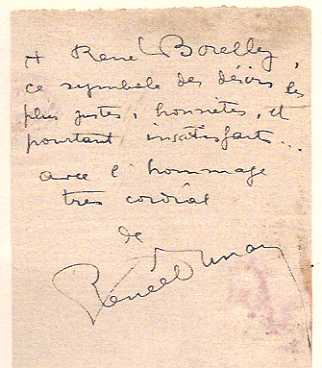 A René Borelly,
ce symbole des désirs les
plus justes, honnêtes, et
pourtant insatisfaits...
avec l'hommage
très cordial
de
Renée Dunan